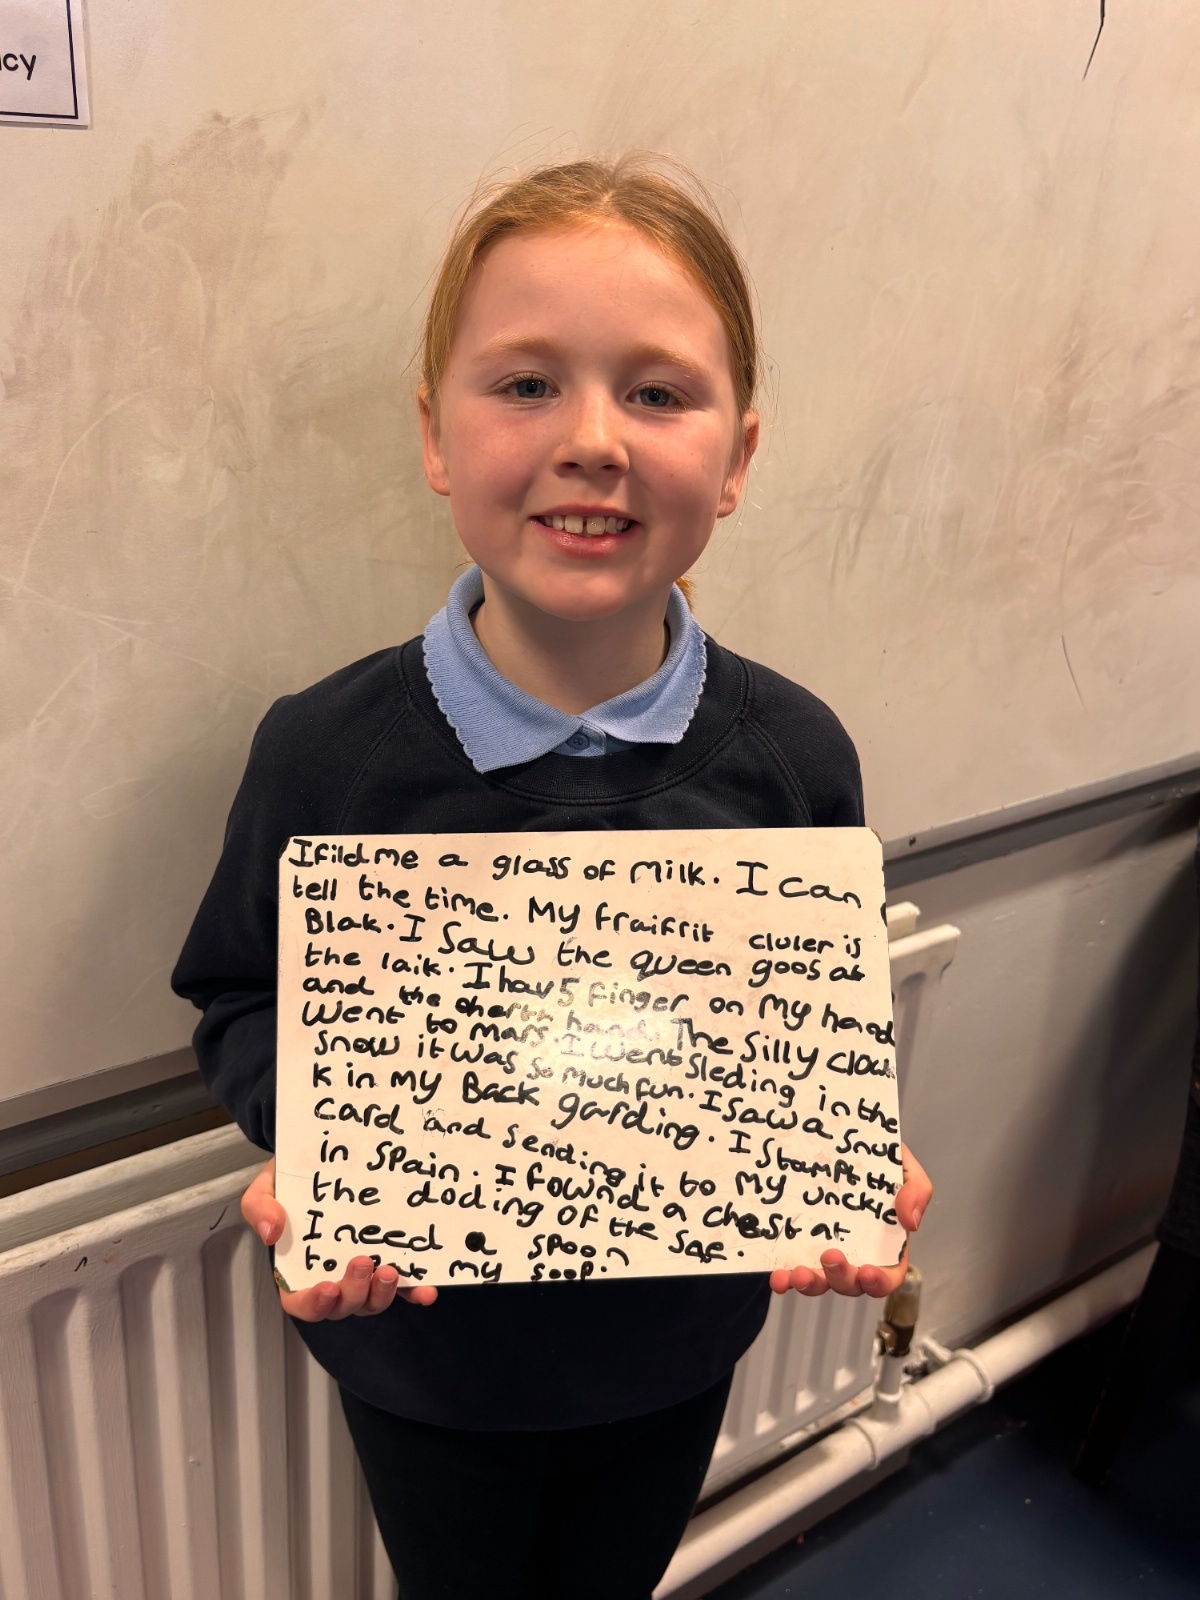 cy
I fild me a glass of milk. I can
tell the time. My fraifrit cluler is
Blak. I saw the queen goos at
the laik. I hav 5 finger on my hand
and the hand. The silly clow
went to mars. I went sleding in the
snow it was so much fun. I saw a snu
k in my Back garding. I stampt the
card and sending it to my unckle
in Spain. I fownd a chest at
the doding of the sae.
I need a spoon
to my soop.